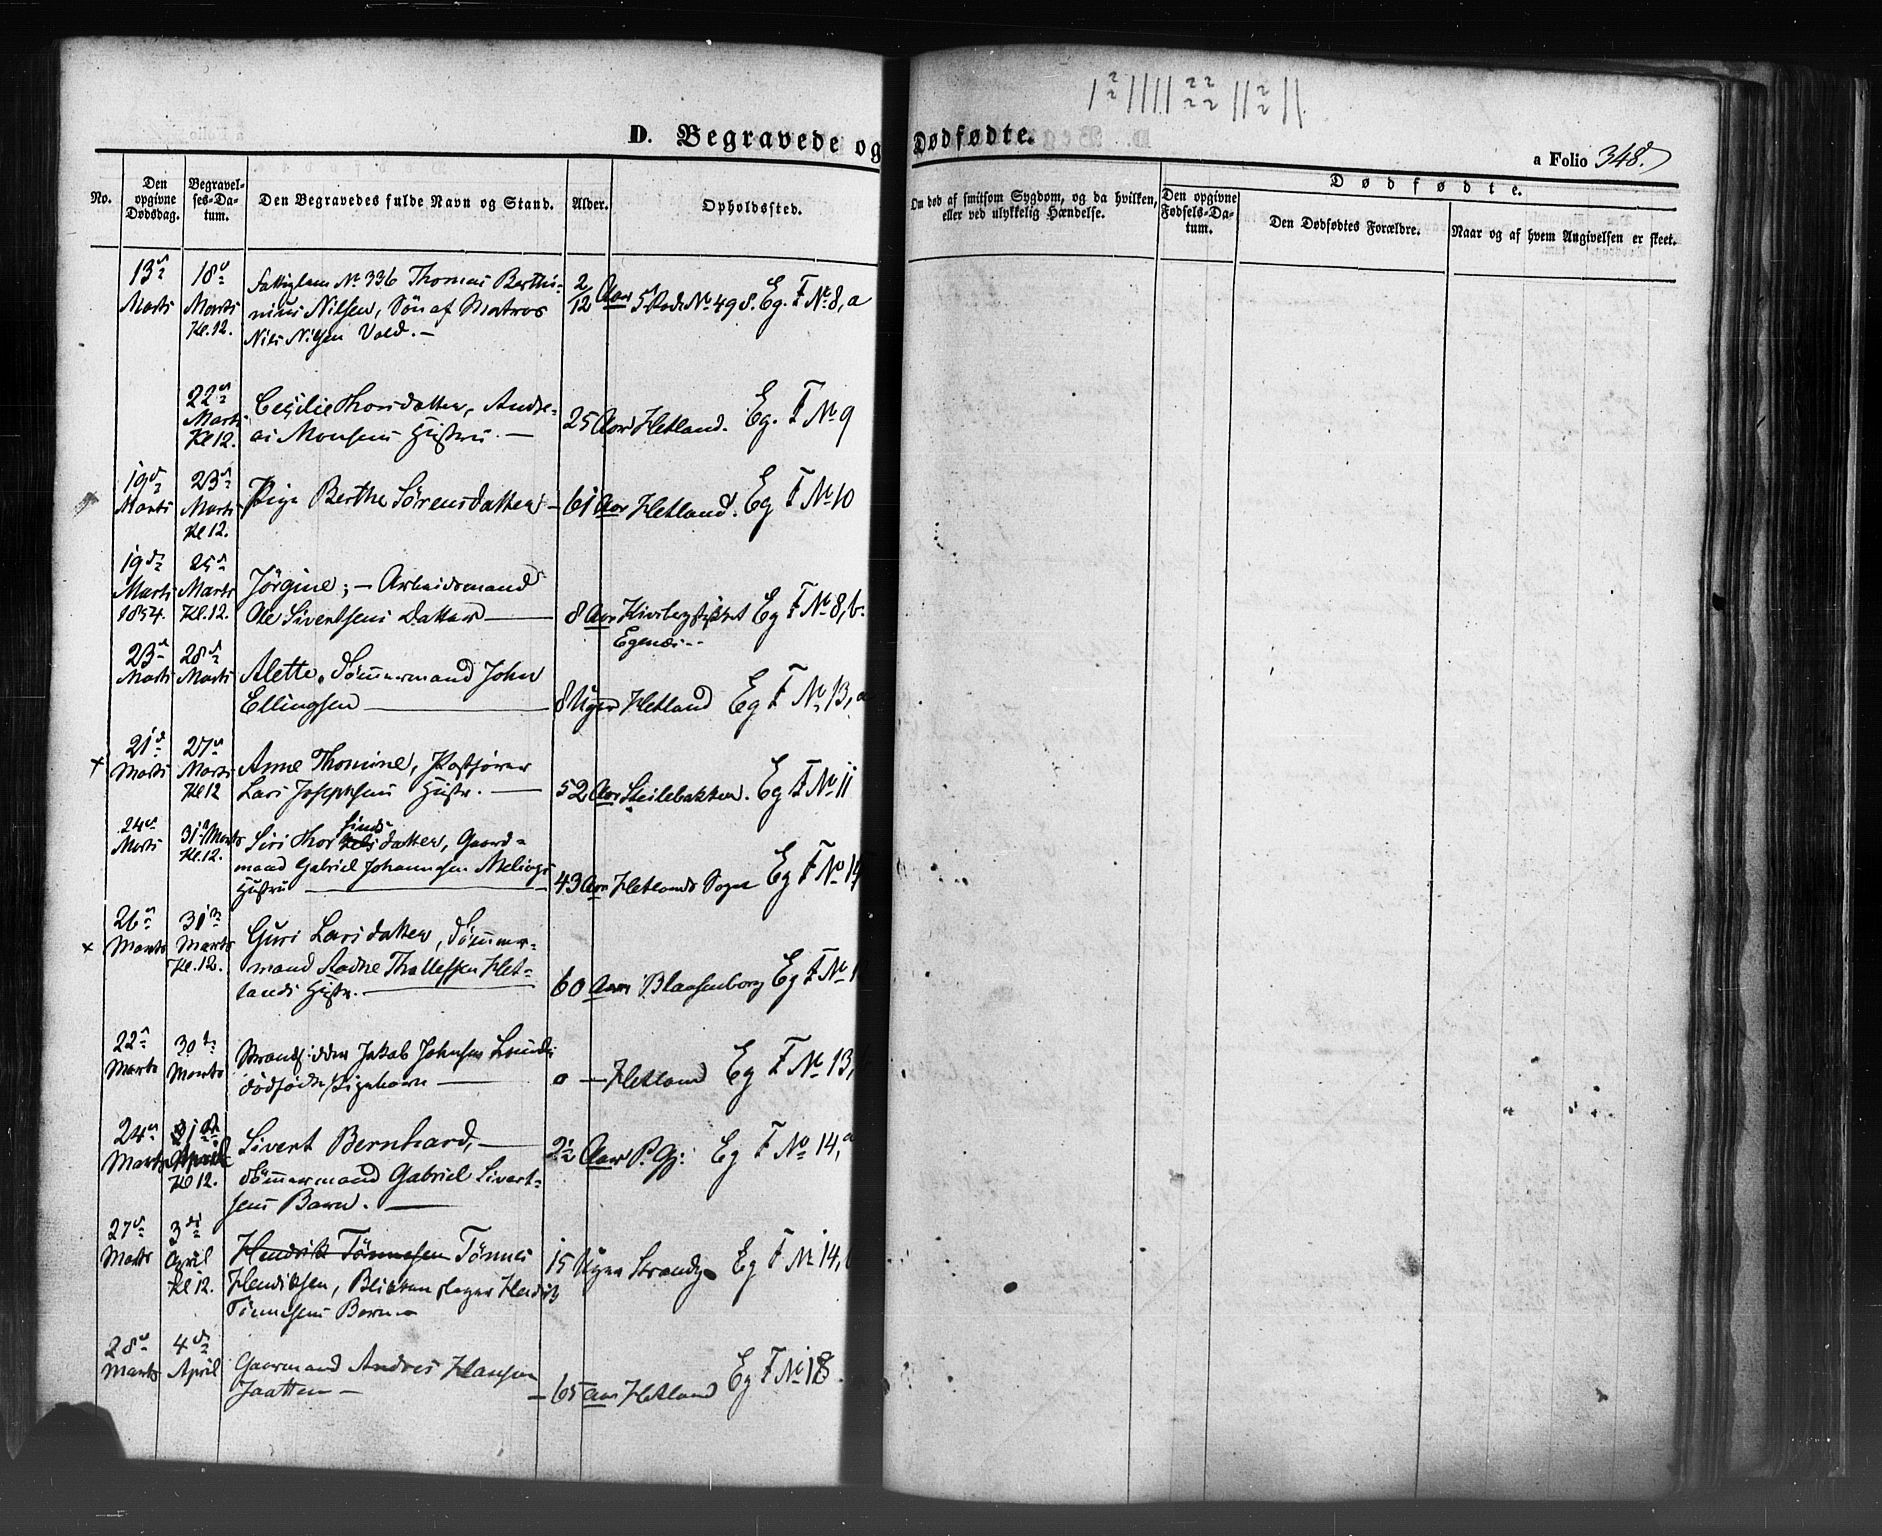 D. Begravede og Dødfødte.
a Folio 348.
No.
Den opgivne Dødsdag.
Begravelses-Datum.
Den Begravedes fulde Navn og Stand.
Alder.
Opholdssted.
Om død af smitsom Sygdom, og da hvilken, eller ved ulykkelig Hændelse.
Dødfødte.
Den opgivne Fødsels-Datum.
Den Dødfødtes Forældre.
Naar og af hvem Angivelsen er skeet.
13de Marts
18de Marts Kl. 12.
Fattiglem No 336 Thomas Berthi-
nius Nilsen, Søn af Matros
Nils Nilsen Vold. —
2/12 Aar
5t Rode No 498. Eg. F No 8, a
22de Marts Kl 12.
Cecilie Thorsdatter, Andre-
as Monsens Hustru. —
25 Aar Hetland. Eg. F No 9
19de Marts
23de Marts Kl 12.
Pige Berthe Sörensdatter —
61 Aar Hetland. Eg F No 10
19de Marts 1854.
25de Marts Kl. 12.
Jörgine; — Arbeidsmand
Ole Sivertsens Datter —
8 Aar
Eg F No 8, b.
Egenæs --
23de Marts
28de Marts
Alette, Tömmermand John
Ellingsen —
8 Uger Hetland Eg F No 13, a
x
21de Marts
27de Marts Kl 12
Anne Thomine,
Lars Josephsens Hustr. —
52 Aar Steilebakken. Eg F No 11
24de Marts
31te Marts Kl. 12.
Siri Thor
datter, Gaard-
mand Gabriel Johannesen Melings
Hustru —
43 Aar Hetlands Sogn Eg F No 14
x
26de Marts
31te Marts Kl. 12.
Guri Larsdatter, Tömmer-
mand Aadne Thollefsen Het-
lands Hustr. —
60 Aar Blaasenborg Eg F No 1
22de Marts
30te Marts
Strandsidder Jakob Johnsen Lunds
dödfödte Pigebarn —
0 — Hetland Eg F No 13,
24de Marts
April Kl 12.
Sivert Bernhard, —
Tömmermand Gabriel Sivert-
sens Barn. —
2½ Aar P. Gj: Eg F No 14, a
27de Marts
3die April Kl 12.
Hendrik Tönnesen Tönnes
Hendiksen, Blikkenslager Hendrik
Tönnesens Barn
15 Uger Strandg Eg F No 14,
28de Marts
4de April
Gaarmand Andres Hansen
Jaatten —
— 65 Aar Hetland Eg F No 18.